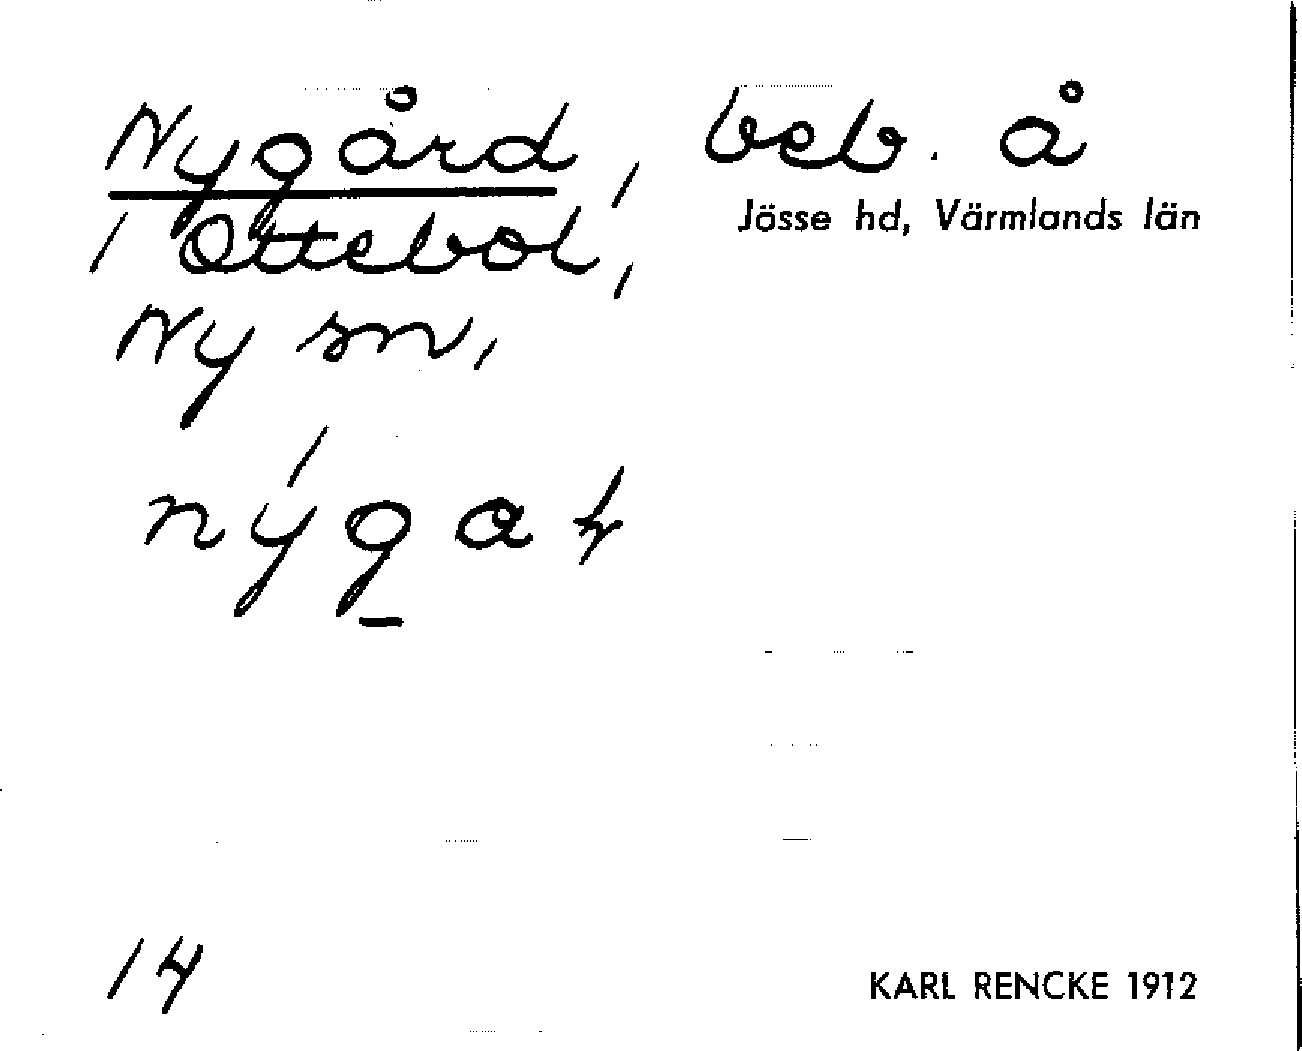 Nygård, beb. å
Jösse hd, Värmlands län
i Ottebol,
Ny sn,
14
KARL RENCKE 1912